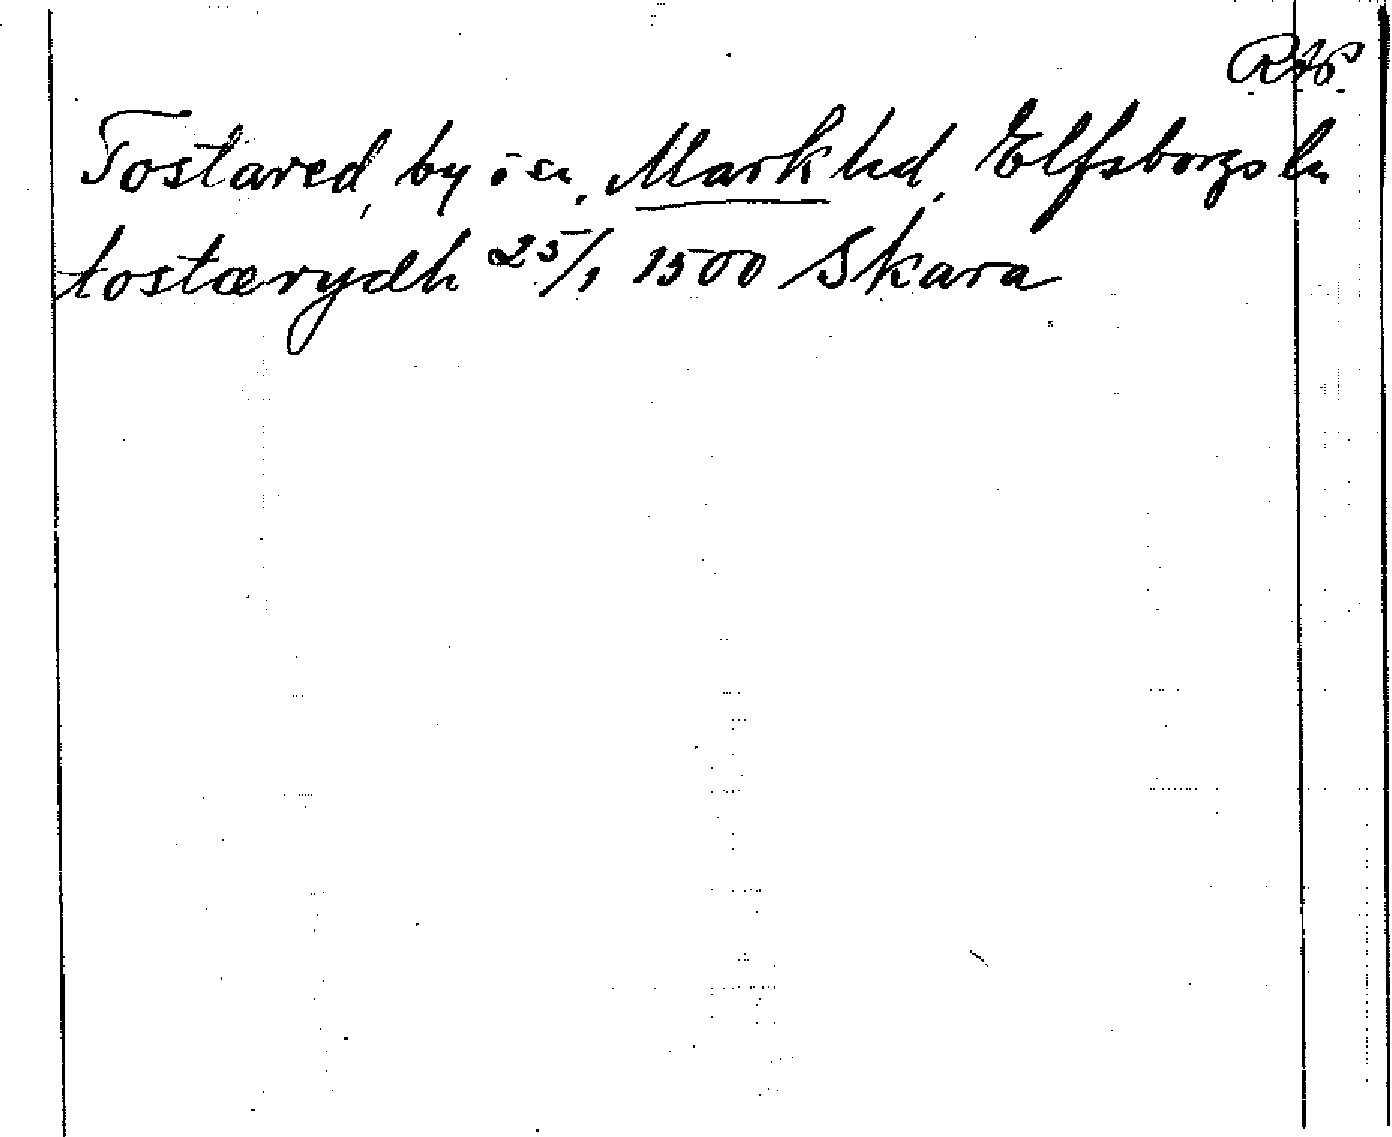 RAP
Tostared, by i sn, Mark hd, Elfsborgs ln
tostærydh 25/1 1500 Skara